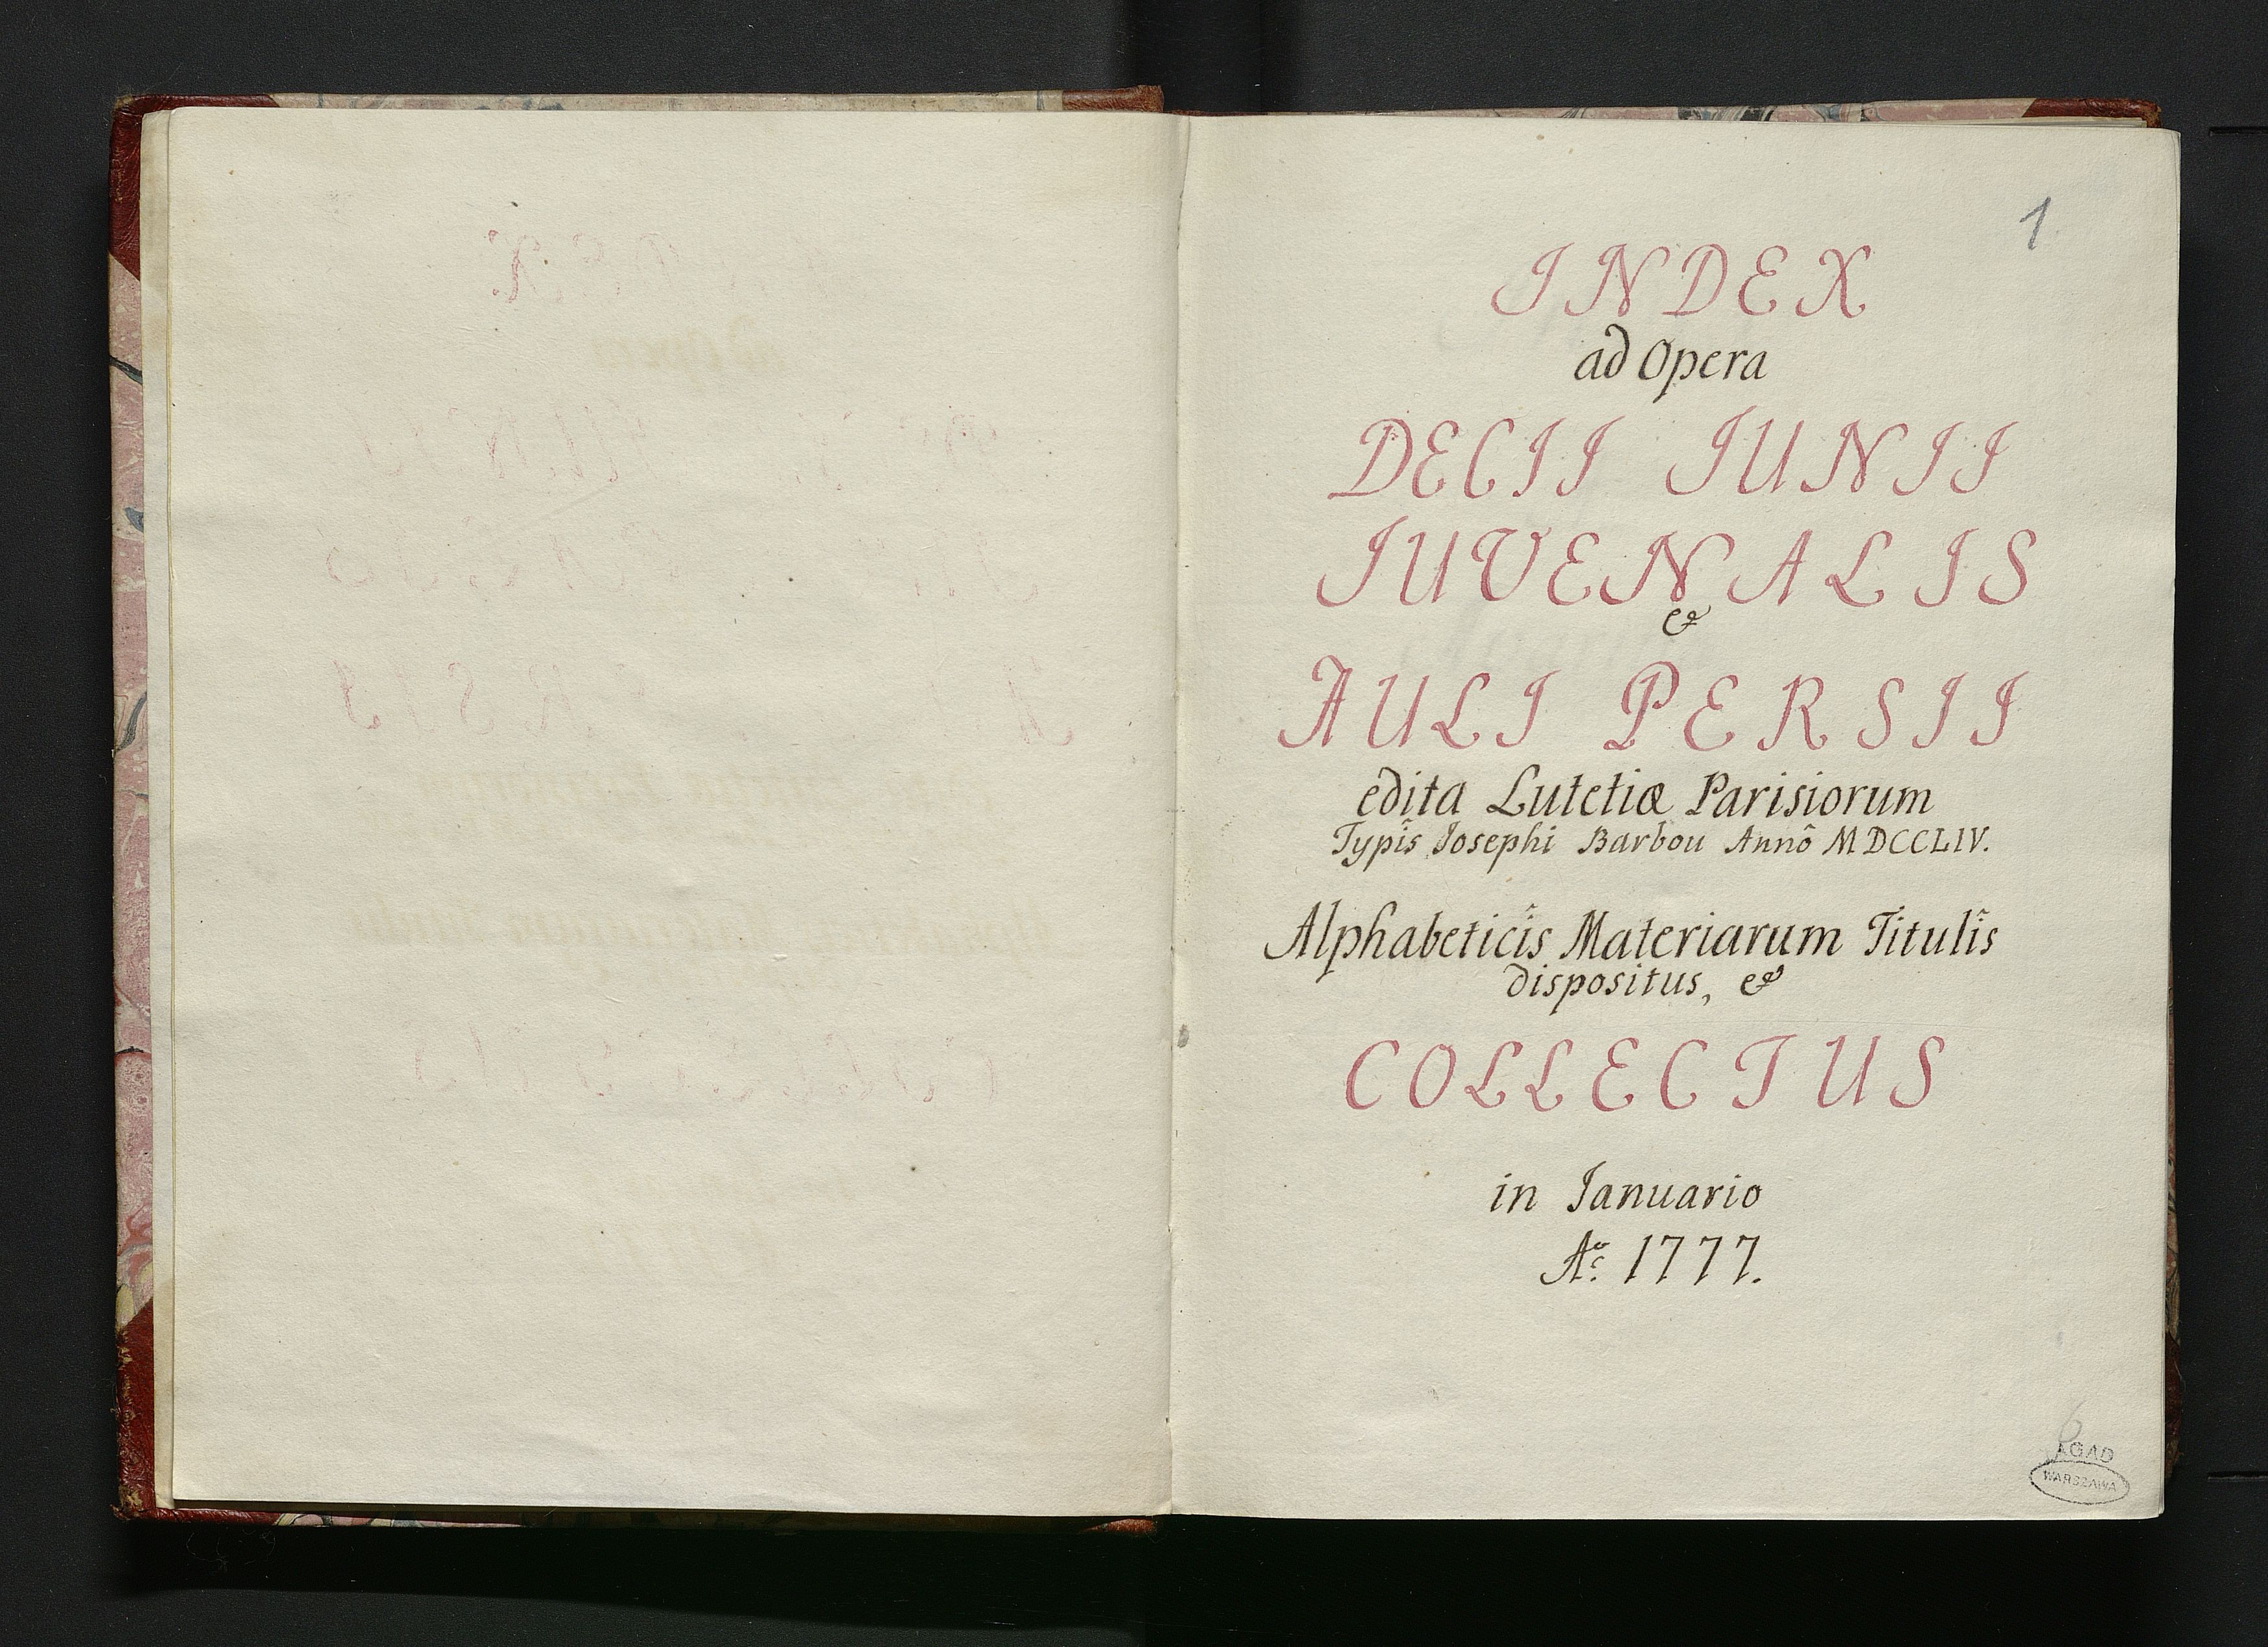 1
INDEX
ad Opera
DECII IUNII
IUVENALIS
&
AULI PERSII
edita Lutetiæ Parisiorum
Typîs Iosephi Barbou Annô MDCCLIV.
Alphabeticîs Materiarum Titulîs
dispositus, &
COLLECTUS
in Ianuario
Aº. 1777.
6
AGAD
WARSZAWA